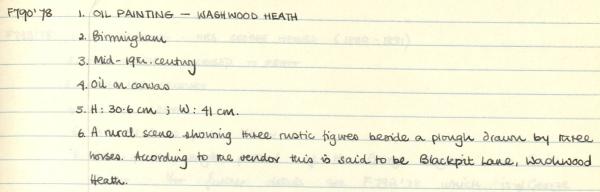 F790'78 1. OIL PAINTING — WASHWOOD HEATH
2. Birmingham
3. Mid-19th. century
4. Oil on canvas
5. H: 30.6 cm ; W: 41 cm.
6. A rural scene showing three rustic figures beside a plough drawn by three
horses. According to the vendor this is said to be Blackpit Lane, Washwood
Heath.